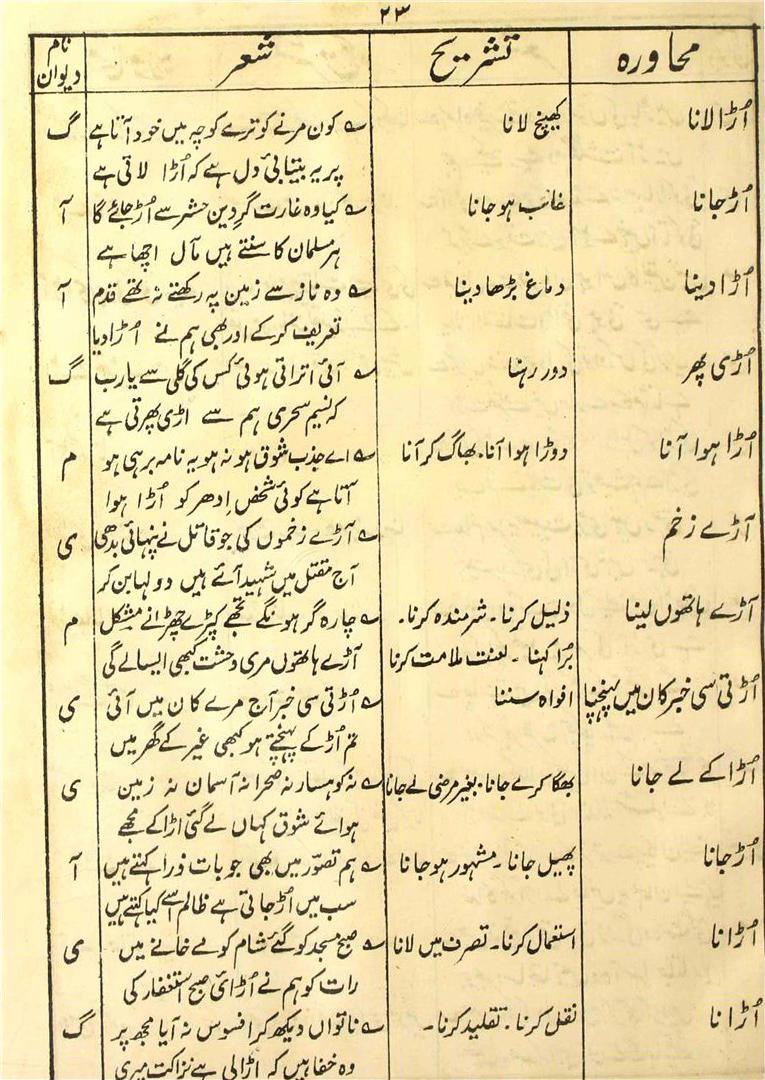 ۲۳
محاورہ تشریح شعر نام دیوان
اُڑا لانا کھینچ لانا ؎ کون مرنے کو ترے کوچہ میں خود آتا ہے گ
پر یہ بیتابیٔ دل ہے کہ اُڑا لاتی ہے
اُڑ جانا غائب ہو جانا ؎ کیا وہ غارت گرِ دین حشر سے اُڑ جائے گا آ
ہر مسلمان کا سنتے ہیں مآل اچھا ہے
اُڑا دینا دماغ بڑھا دینا ؎ وہ ناز سے زمین پہ رکھتے نہ تھے قدم آ
تعریف کر کے اور بھی ہم نے اُڑا دیا
اُڑی پھر دور رہنا ؎ آئی اتراتی ہوئی کس کی گلی سے یارب گ
کہ نسیم سحری ہم سے اڑی پھرتی ہے
اُڑا ہوا آنا دوڑا ہوا آنا۔ بھاگ کر آنا ؎ اے جذب شوق ہو نہ ہو یہ نامہ بر ہی ہو م
آتا ہے کوئی شخص اِدھر کو اُڑا ہوا
آڑے زخم ؎ آڑے زخموں کی جو قاتل نے پنہائی بدھی ی
آج مقتل میں شہید آئے ہیں دولہا بن کر
آڑے ہاتھوں لینا ذلیل کرنا۔ شرمندہ کرنا۔ ؎ چارہ گر ہونگے تجھے کپڑے چھڑانے مشکل م
بُرا کہنا ۔ لعنت ملامت کرنا آڑے ہاتھوں مری وحشت کبھی ایسا لے گی
اُڑتی سی خبر کان میں پہنچنا افواہ سننا ؎ اُڑتی سی خبر آج مرے کان میں آئی ی
تم اُڑ کے پہنچتے ہو کبھی غیر کے گھر میں
اُڑا کے لے جانا بھگا کر لے جانا۔ بغیر مرضی لے جانا ؎ نہ کوہسار نہ صحرا نہ آسمان نہ زمین ی
ہوائے شوق کہاں لے گئی اڑا کے مجھے
اُڑ جانا پھیل جانا ۔ مشہور ہو جانا ؎ ہم تصوّر میں بھی جو بات ذرا کہتے ہیں آ
سب میں اُڑ جاتی ہے ظالم اسے کیا کہتے ہیں
اُڑانا استعمال کرنا۔ تصرف میں لانا ؎ صبح مسجد کو گئے شام کو مے خانے میں ی
رات کو ہم نے اُڑائی صبح استغفار کی
اُڑانا نقل کرنا ۔ تقلید کرنا۔ ؎ ناتواں دیکھ کر افسوس نہ آیا مجھ پر گ
وہ خفا ہیں کہ اڑا لی ہے نزاکت میری